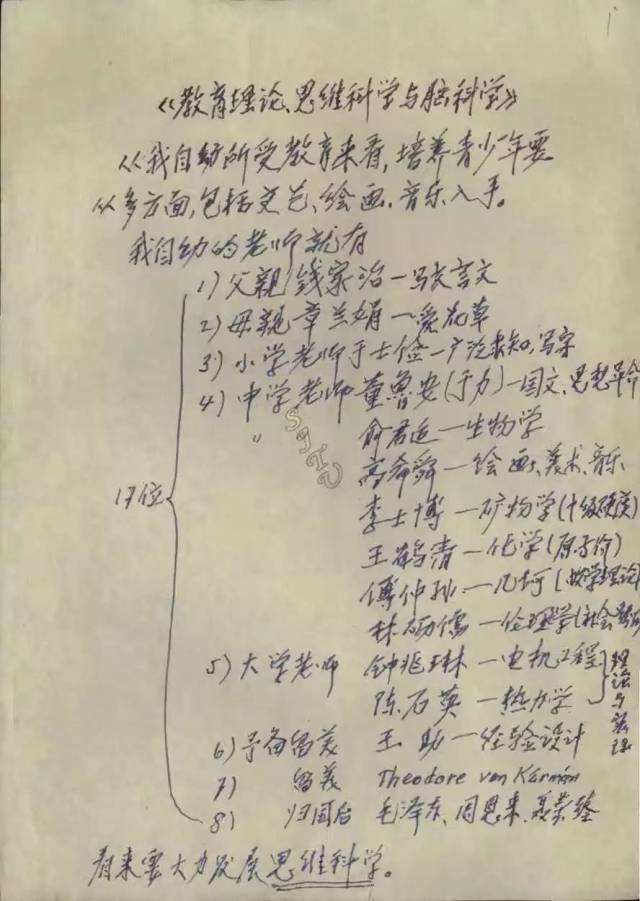 《教育理论、思维科学与脑科学》
从我自幼所受教育来看,培养青少年要
从多方面,包括文艺、绘画、音乐入手。
我自幼的老师就有
17位
1)父亲 钱家治—写文言文
2)母亲—章兰娟—爱花草
3)小学老师于士俭—广泛求知,写字
4)中学老师 董鲁安(于力)—国文、思想革命
〃 俞君适—生物学
高希舜—绘画、美术、音乐
李士博—矿物学(十级硬度)
王鹤清—化学(原子价)
傅仲孙—几何(数学理论)
林砺儒—伦理学(社会
5)大学老师 钟兆琳—电机工程
陈石英—热力学
理论与实际
6)予备留美 王助—经验设计
7) 留美 Theodore von Kármán
8) 归国后 毛泽东、周恩来、聂荣臻
看来要大力发展思维科学。
SJTU